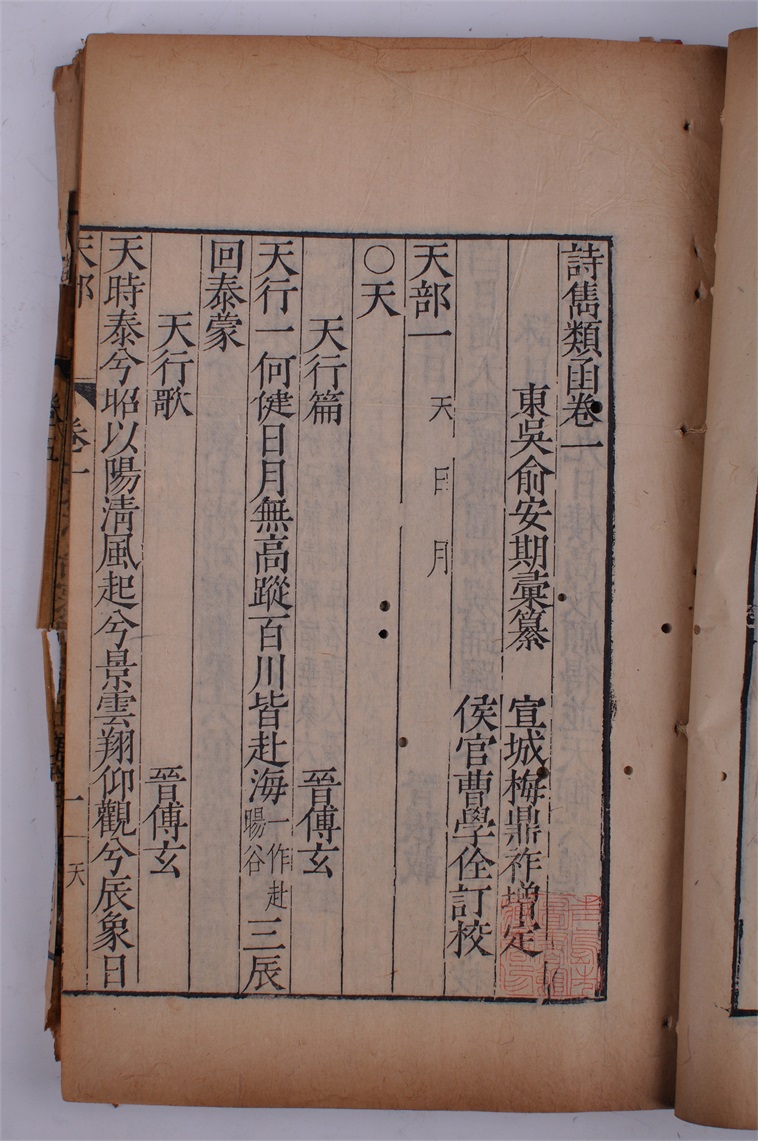 詩雋類函卷一
東吳俞安期彙纂
宣城梅鼎祚增定
侯官曹學佺訂校
天部一 天 日 月
○天
天行篇 晉傅玄
天行一何健日月無高蹤百川皆赴海一作赴暘谷三辰
回泰蒙
天行歌 晉傅玄
天時泰兮昭以陽清風起兮景雲翔仰觀兮辰象日
天部 卷一 一 天